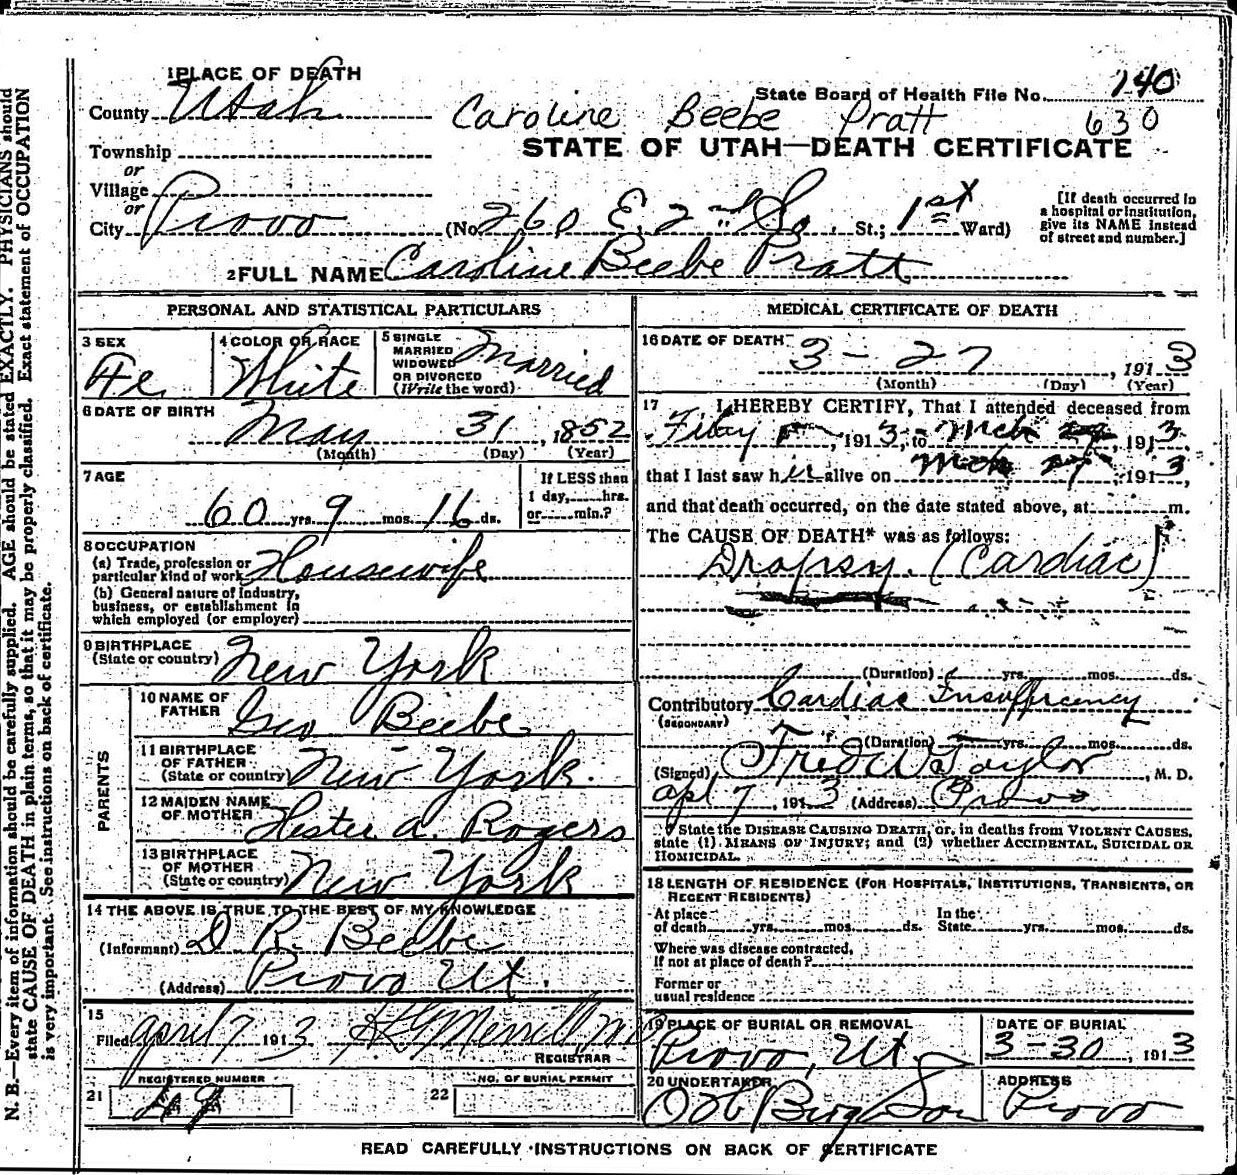 1 PLACE OF DEATH
State Board of Health File No. 140
County Utah
Caroline Beebe Pratt 630
STATE OF UTAH—DEATH CERTIFICATE
Township
or
Village
or
City Provo (No. 260 E. 2nd So. St.; 1st Ward)
[If death occurred in
a hospital or institution,
give its NAME instead
of street and number.]
2 FULL NAME Caroline Beebe Pratt
PERSONAL AND STATISTICAL PARTICULARS
3 SEX
Fe
4 COLOR OR RACE
White
5 SINGLE
MARRIED
WIDOWED
OR DIVORCED
(Write the word)
Married
6 DATE OF BIRTH
May 31, 1852
(Month) (Day) (Year)
7 AGE
60 yrs. 9 mos. 16 ds.
If LESS than
1 day, hrs.
or min.?
8 OCCUPATION
(a) Trade, profession or
particular kind of work Housewife
(b) General nature of industry,
business, or establishment in
which employed (or employer)
9 BIRTHPLACE
(State or country) New York
PARENTS
10 NAME OF
FATHER Geo Beebe
11 BIRTHPLACE
OF FATHER
(State or country) New York.
12 MAIDEN NAME
OF MOTHER Hester A. Rogers
13 BIRTHPLACE
OF MOTHER
(State or country) New York
14 THE ABOVE IS TRUE TO THE BEST OF MY KNOWLEDGE
(Informant) D R. Beebe
(Address) Provo Ut.
15
Filed April 7 1913 Merrill
REGISTRAR
REGISTERED NUMBER
21 49
NO. OF BURIAL PERMIT
22
MEDICAL CERTIFICATE OF DEATH
16 DATE OF DEATH
3 - 27, 1913
(Month) (Day) (Year)
17 I HEREBY CERTIFY, That I attended deceased from
, 1913, to Mch 1913,
that I last saw her alive on Mch 27 1913,
and that death occurred, on the date stated above, at m.
The CAUSE OF DEATH* was as follows:
Dropsy. (Cardiac)
(Duration) yrs. mos. ds.
Contributory Cardiac Insufficiency
(SECONDARY)
(Duration) yrs. mos. ds.
(Signed) Fred W Taylor, M. D.
Apl 7, 1913 (Address) Provo
* State the DISEASE CAUSING DEATH, or, in deaths from VIOLENT CAUSES,
state (1) MEANS OF INJURY; and (2) whether ACCIDENTAL, SUICIDAL OR
HOMICIDAL.
18 LENGTH OF RESIDENCE (FOR HOSPITALS, INSTITUTIONS, TRANSIENTS, OR
RECENT RESIDENTS)
At place
of death yrs. mos. ds.
In the
State yrs. mos. ds.
Where was disease contracted,
If not at place of death?
Former or
usual residence
19 PLACE OF BURIAL OR REMOVAL
Provo, Ut.
DATE OF BURIAL
3-30, 1913
20 UNDERTAKER
Berg Son
ADDRESS
Provo
READ CAREFULLY INSTRUCTIONS ON BACK OF CERTIFICATE
N. B.—Every item of information should be carefully supplied. AGE should be stated EXACTLY. PHYSICIANS should
state CAUSE OF DEATH in plain terms, so that it may be properly classified. Exact statement of OCCUPATION
is very important. See instructions on back of certificate.